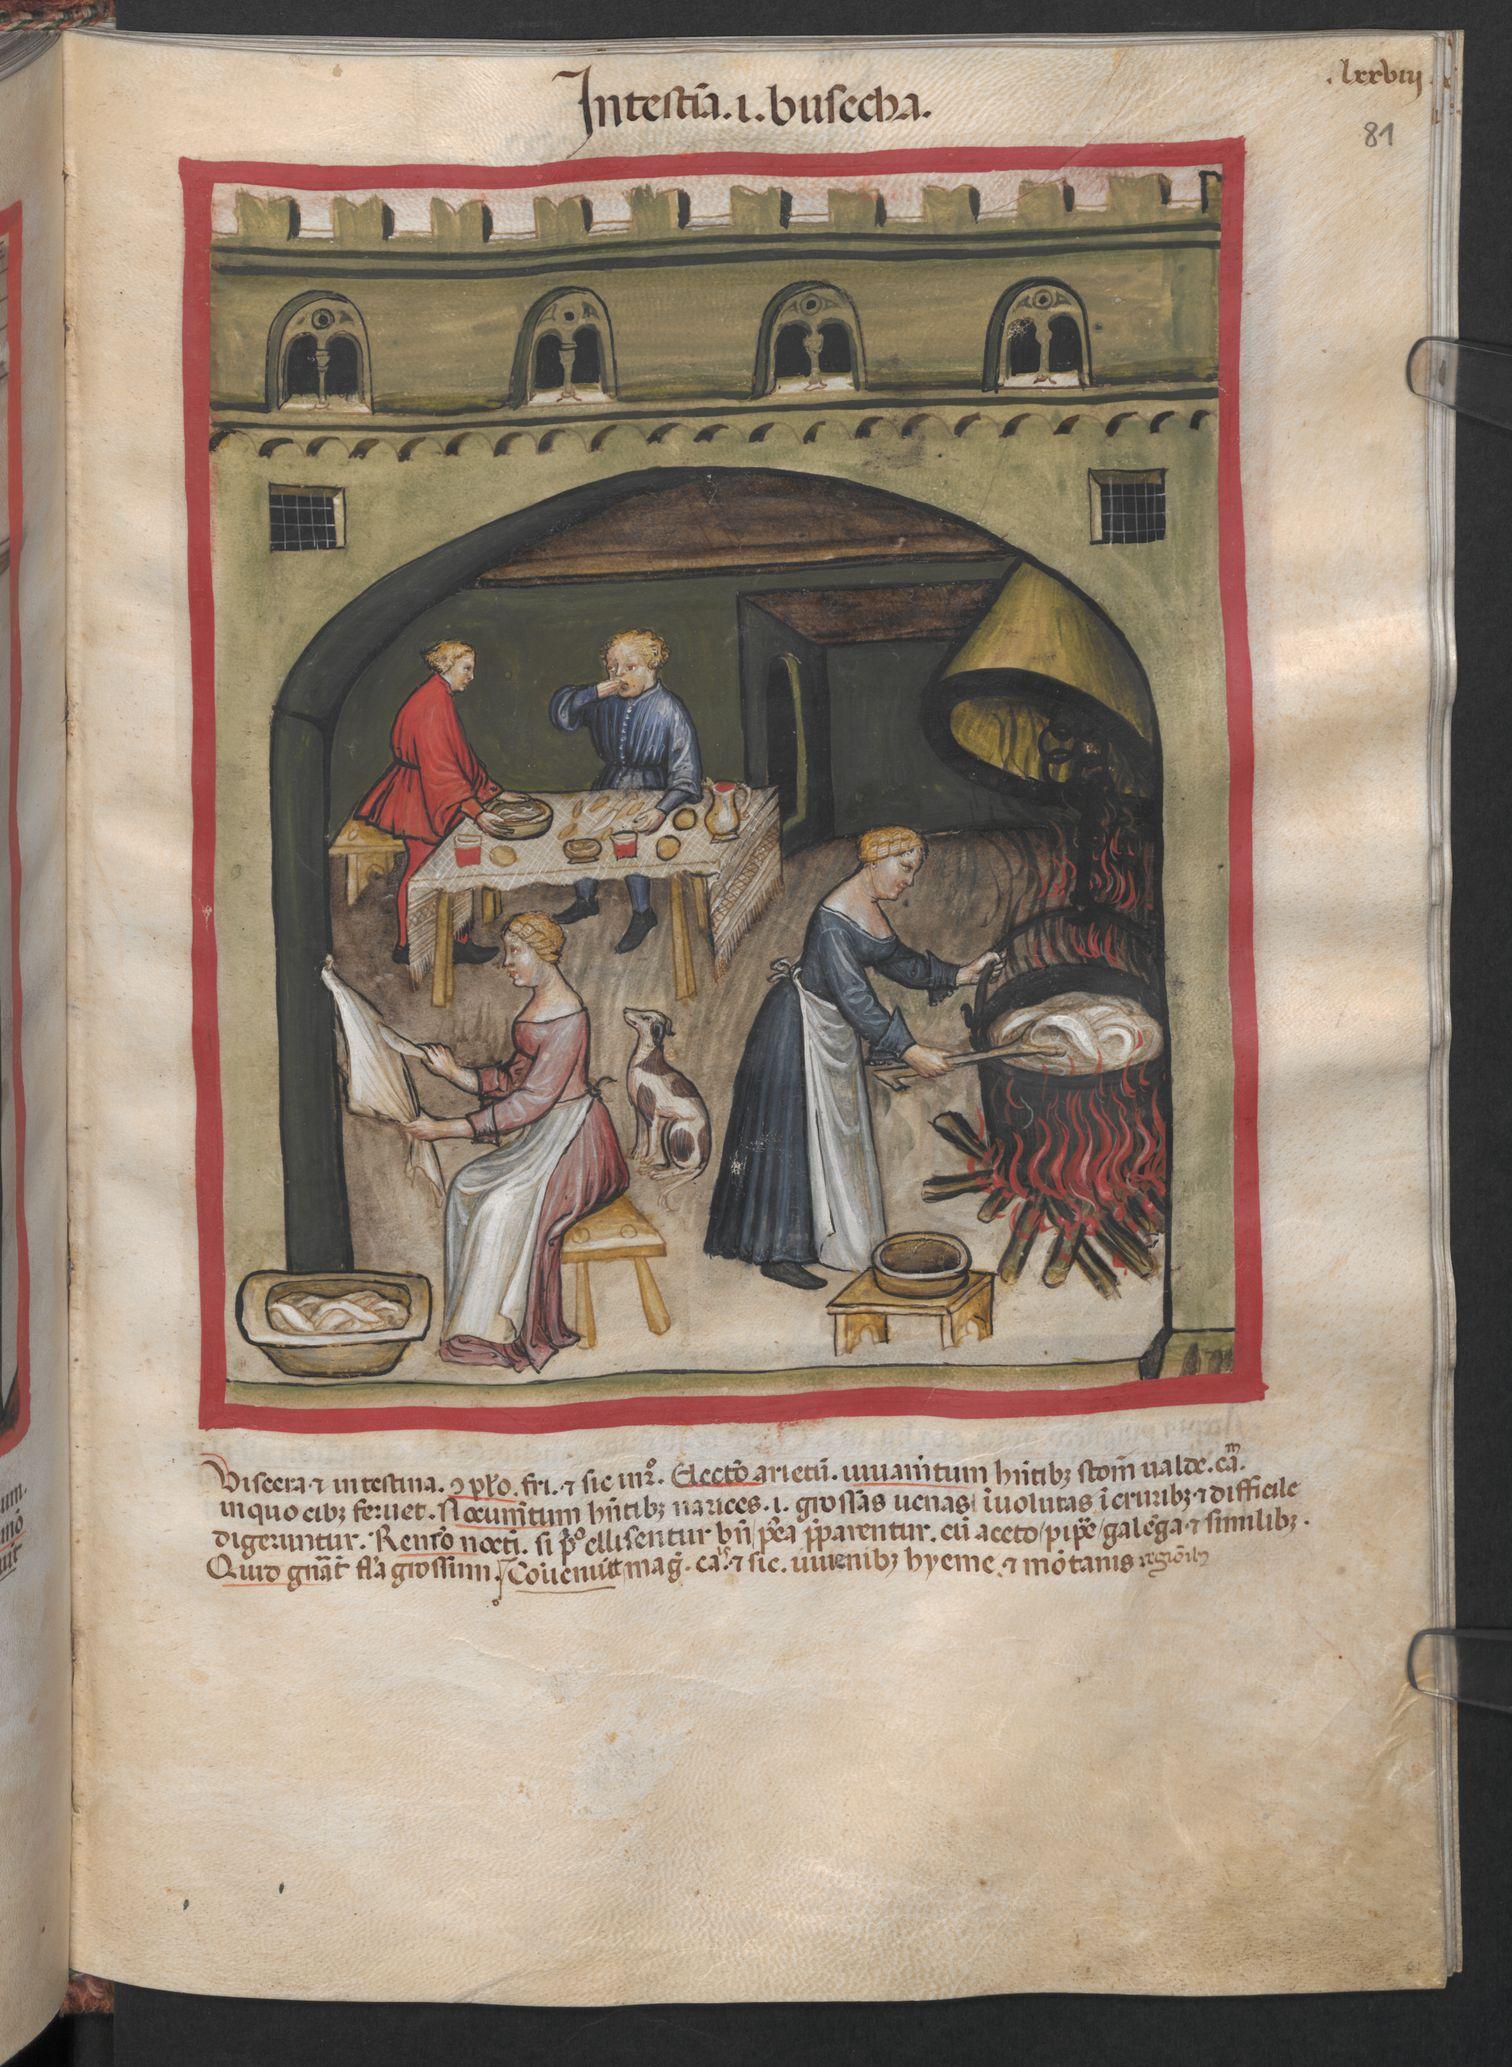 .lxxviij.
81
Intestīa. i. busecha.
Viscera. ⁊ intestina. ꝯplo. fri. ⁊ sic. in 2o. Electō arietū. iuuam̄tum hn̄tibꝫ stom̄ ualde. cam.
in quo cibꝫ feruet. Nocum̄tum hn̄tibꝫ uarices. i. grossas uenas īuolutas ī cruribꝫ ⁊ difficile
digeruntur. Remō nocti. si pº ellisentur bn̄ pea p̄parentur. cū aceto pipe galēga ⁊ similibꝫ.
Quid gn̄at fla grossum. Cōuenīūt maḡ. cais. ⁊ sic. iuuenibꝫ hyeme. ⁊ mōtanis regiōibꝫ